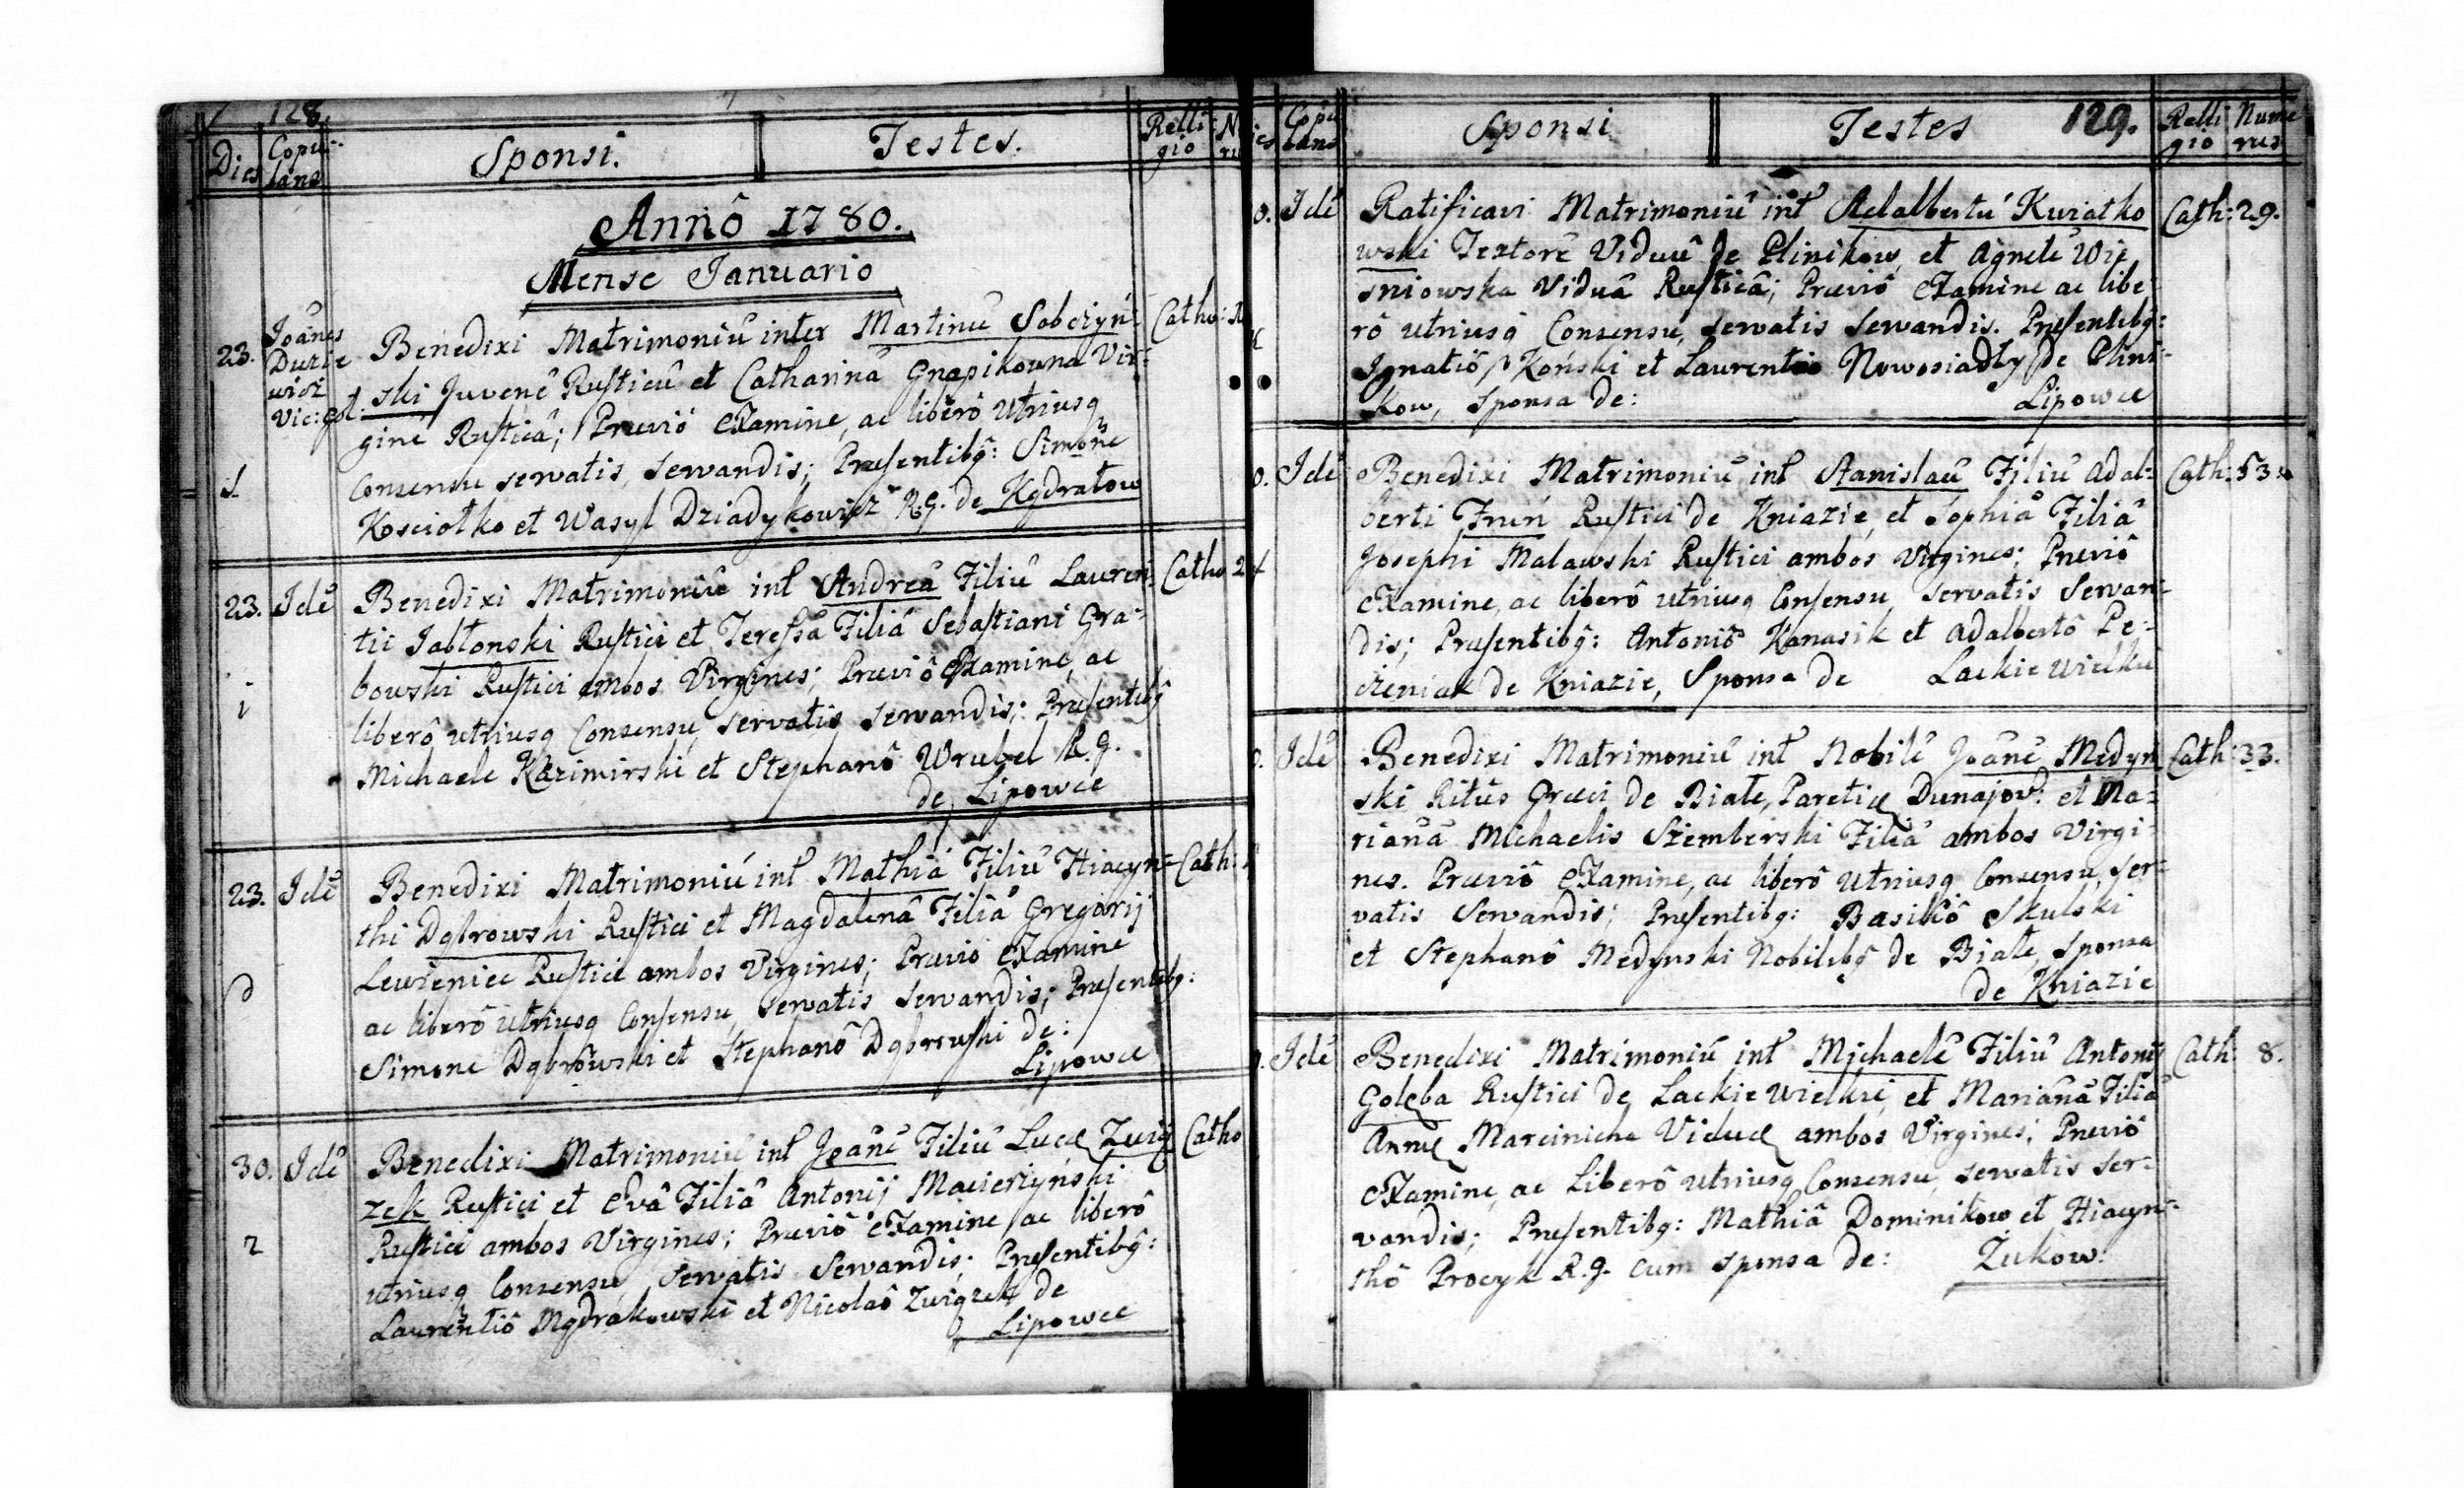 128.
Dies Copu-lans Sponsi. Testes. Relli-gio
Annô 1780.
Mense Ianuario
23. Joanes Benedixi Matrimoniū inter Martinū Sobczyń- Catho:
ski Juvenē Rusticū et Catharinā Gnapikowna Vir-
Vic: gine Rusticâ; Præviô Examine, ac liberô utriusq
Consensu servatis, servandis; Præsentibq: Simone
Kosciołko et Wasyl Dziadykowicz R.g. de Kądratow
23. Idē Benedixi Matrimoniū int Andreā Filiū Lauren- Catho 2
tii Jabłonski Rustici et Teressā Filiā Sebastiani Gra-
bowski Rustici ambos Virgines; Præviô Examine, ac
liberô utriusq Consensu, servatis servandis; Præsentibq
Michaele Kazimirski et Stephanô Wrubel R.g.
de Lipowce
23. Idē Benedixi Matrimoniū int Mathiā Filiū Hiacyn- Cath:
thi Dąbrowski Rustici et Magdalenā Filiā Gregorij
Rustici ambos Virgines; Prævio Examine
ac liberô utriusq Consensu, servatis servandis; Præsentibq:
Simone Dąbrowski et Stephanô Dąbrowski de:
Lipowce
30. Idē Benedixi Matrimoniū int Joanē Filiū Lucæ Zwią Catho
zek Rustici et Evā Filiā Antonij Macierzyński
Rustici ambos Virgines; Præviô Examine, ac liberô
utriusq Consensu, servatis servandis; Præsentibq:
Laurentiô Mądrakowski et Nicolaô Związek de
Lipowce
Copu-lans Sponsi Testes 129. Relli-gio Nume-rus
0. Idē Ratificavi Matrimoniū int Adalbertū Kwiatko Cath: 29.
wski Textorē Viduū de Plinikow, et Agnetē Wi
sniowska Viduā Rusticā; Præviô Examine ac libe-
rô utriusq Consensu, servatis servandis. Præsentibq:
Ignatiô Koński et Laurentio Nowosiadły de Plini-
kow, Sponsa de: Lipowce
0. Idē Benedixi Matrimoniū int Stanislaū Filiū Adal- Cath: 53
berti Frań Rustici de Kniazie, et Sophiā Filiā
Josephi Malawski Rustici ambos Virgines; Præviô
Examine, ac liberô utriusq Consensu, servatis servan-
dis; Præsentibq: Antoniô Kanasik et Adalbertô Pe-
czeniak de Kniazie, Sponsa de Lackie wielkie
0. Idē Benedixi Matrimoniū int Nobilē Joanē Medyn Cath: 33.
ski Ritûs Græci de Białe, Paretiæ Dunajov: et Ma-
rianā Michaelis Szemberski Filiā ambos Virgi-
nes. Præviô Examine, ac liberô utriusq Consensu, ser-
vatis servandis; Præsentibq: Basiliô Skulski
et Stephanô Medynski Nobilibq de Białe, Sponsa
de Kniazie
Idē Benedixi Matrimoniū int Michaelē Filiū Antonij Cath: 8.
Golęba Rustici de Lackie wielkie, et Marianā Filiā
Annæ Marcinicha Viduæ ambos Virgines; Præviô
Examine, ac Liberô utriusq Consensu, servatis ser-
vandis; Præsentibq: Mathiâ Dominikow et Hiacyn-
thô Procyk R.g. cum sponsa de: Żukow: